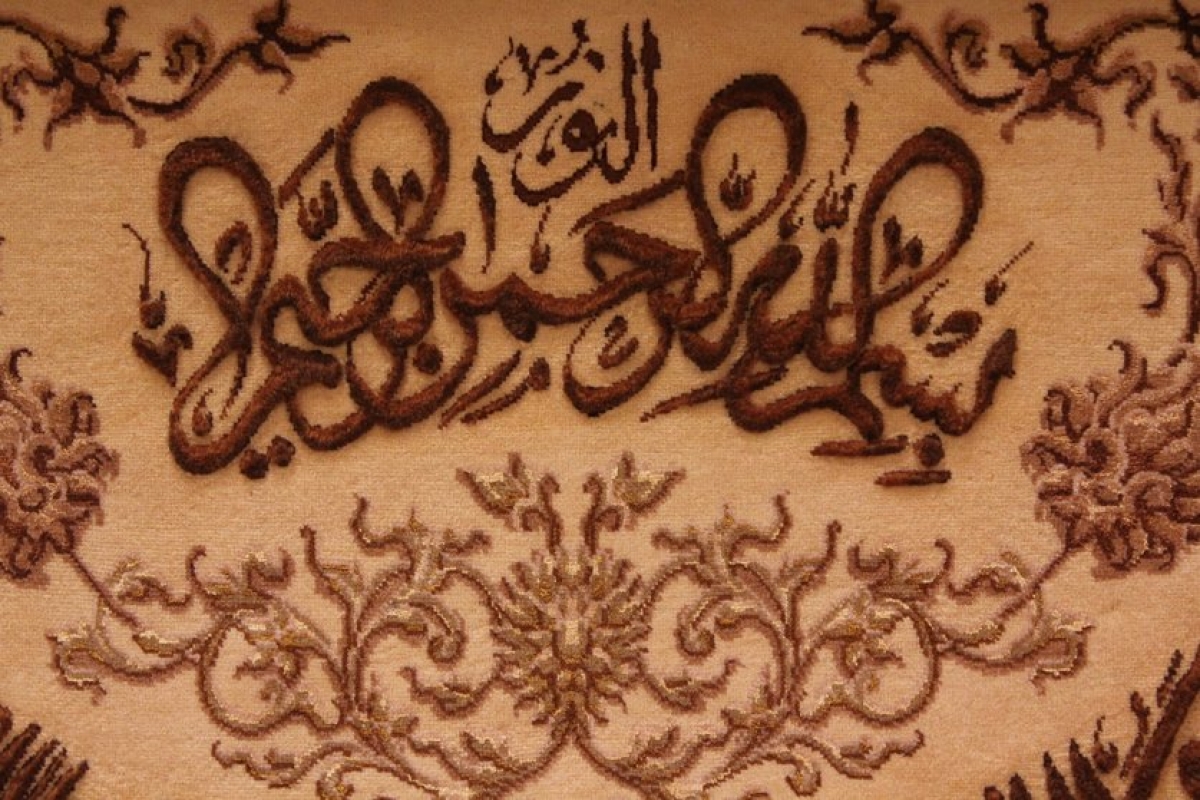 النور
بسم الله الرحمن الرحيم